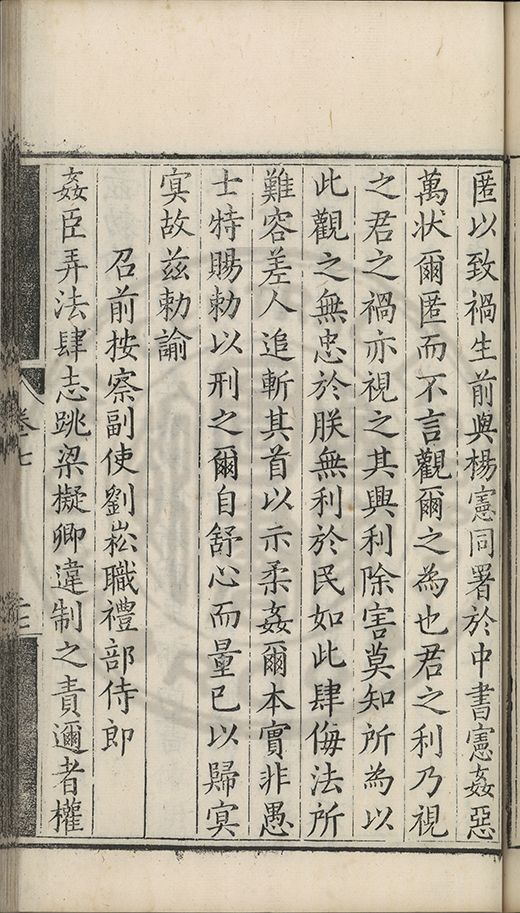 匿以致禍生前與楊憲同署於中書憲姦惡
萬状爾匿而不言觀爾之為也君之利乃視
之君之禍亦視之其興利除害莫知所為以
此觀之無忠於朕無利於民如此肆侮法所
難容差人追斬其首以示柔姦爾本實非愚
士特賜勑以刑之爾自舒心而量已以歸冥
冥故兹勑諭
召前按察副使劉崧職禮部侍郎
姦臣弄法肆志跳梁擬卿違制之責邇者權
卷七